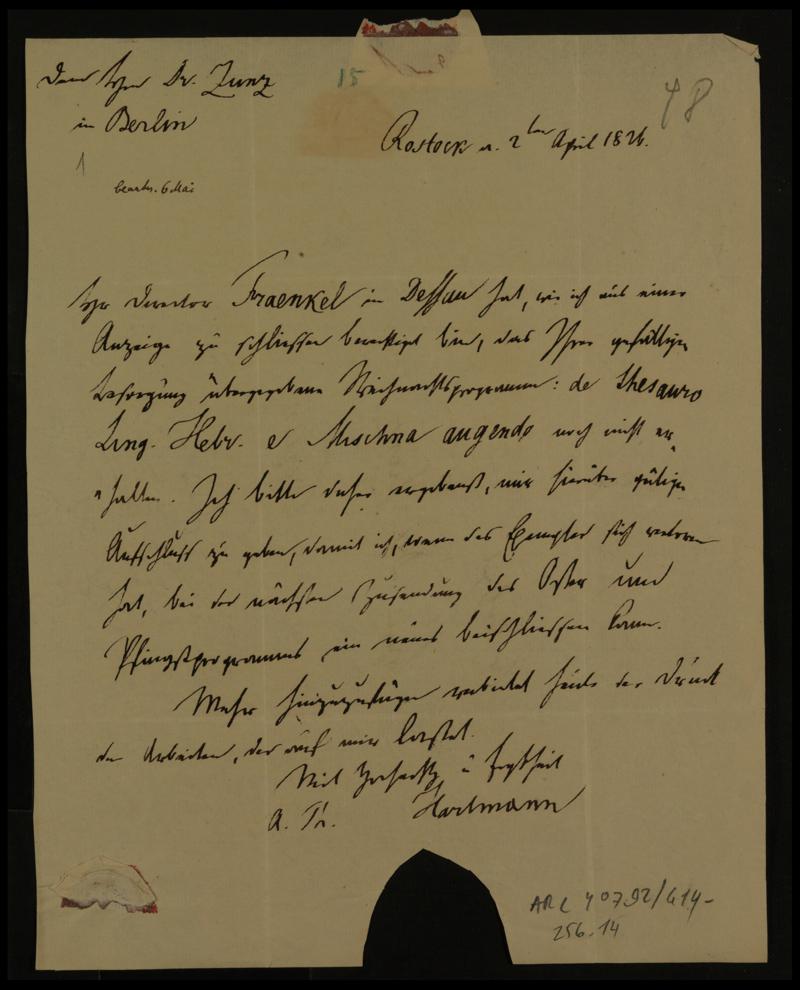 Dem Herrn Dr. Zunz
15
48
in Berlin
Rostock d. 2ten April 1826.
1
beantw. 6 Mai
Herr Director Fraenkel in Dessau hat, wie ich aus einer
Anzeige zu schliessen berechtigt bin, das Ihrer gefälligen
Besorgung übergebene Weihnachtsprogramm: de thesauro
Ling. Hebr. e Mischna augendo noch nicht er-
halten. Ich bitte daher ergebenst, mir hierüber gütigen
Aufschluss zu geben, damit ich, wenn das Exemplar sich verloren
hat, bei der nächsten Zusendung des Oster und
Pfingstprogramms ein neues beischliessen kann.
Mehr hinzuzufügen verbietet heute der Druck
der Arbeiten, der auf mir lastet.
Mit Hochachtg u Ergbheit
Hartmann
ARC 4 0792/G14-
256.14